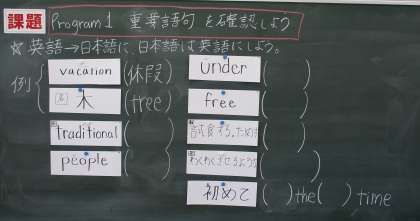 課題 Program 1 重要語句を確認しよう
☆英語→日本語に、日本語は英語にしよう。
例 vacation (休暇)
木 (tree)
traditional ( )
people ( )
under ( )
free ( )
試食する、ために ( )
わくわくさせるような ( )
初めて ( ) the ( ) time